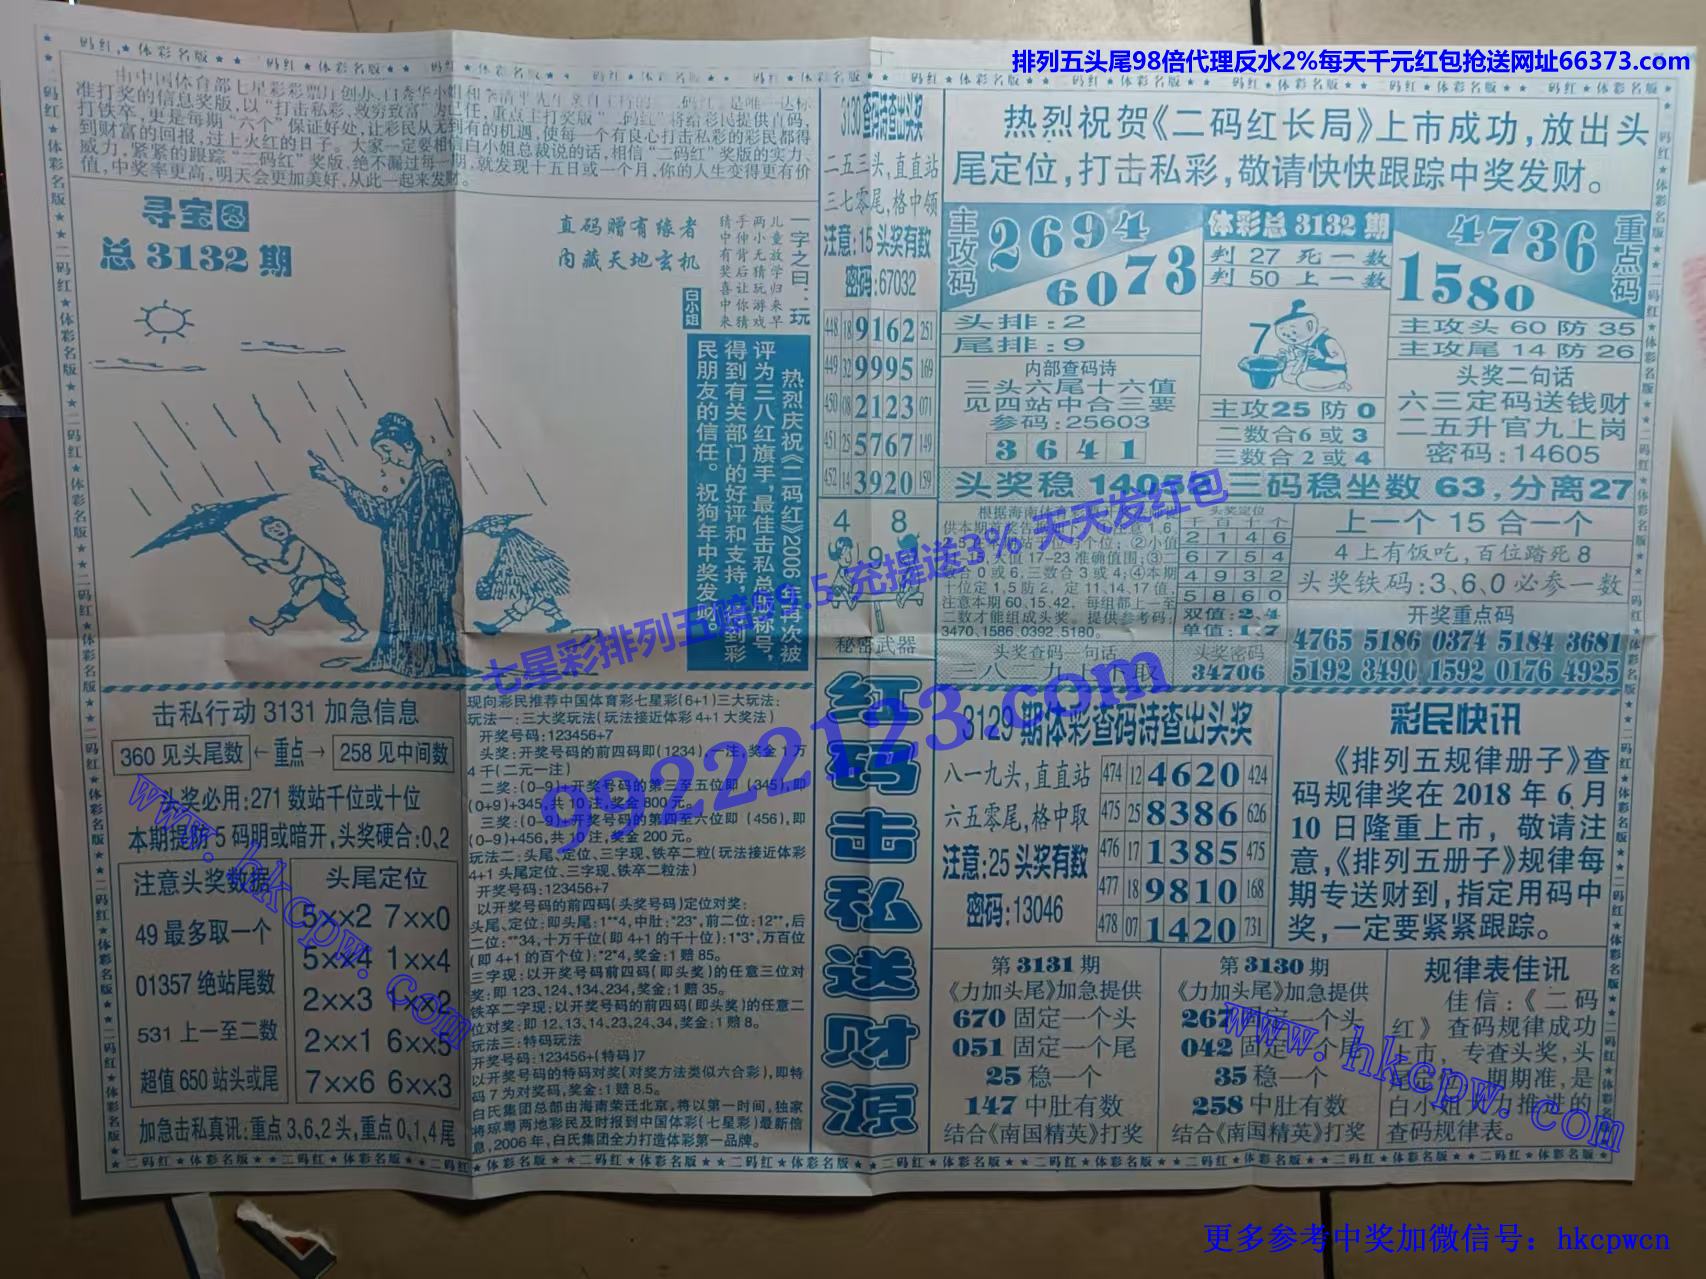 排列五头尾98倍代理反水2%每天千元红包抢送网址66373.com
准打奖的信息奖版,以“打击私彩,救穷致富”为己任,重点主打奖版“二码红”将给彩民提供直码,
打铁卒,更是每期“六个”保证好处,让彩民从无到有的机遇,使每一个有良心打击私彩的彩民都得
到财富的回报,过上火红的日子。大家一定要相信白小姐总裁说的话,相信“二码红”奖版的实力、
威力,紧紧的跟踪“二码红”奖版,绝不漏过每一期,就发现十五日或一个月,你的人生变得更有价
值,中奖率更高,明天会更加美好,从此一起来发财。
寻宝图
总3132期
直码赠有缘者
内藏天地玄机
白小姐
一字之曰:玩
儿童放学归来早
两小无猜玩游戏
手伸背后让你猜
猜中有奖喜中来
热烈庆祝《二码红》2006年再次被
评为三八红旗手,最佳击私总版称号,
得到有关部门的好评和支持,得到彩
民朋友的信任。祝狗年中奖发财。
3130查码诗查出头奖
二五三头,直直站
三七零尾,格中领
注意:15头奖有数
密码:67032
448 18 9162 251
449 32 9995 169
450 08 2123 071
451 25 5767 149
452 14 3920 159
4 8
9
秘密武器
红码击私送财源
热烈祝贺《二码红长局》上市成功,放出头
尾定位,打击私彩,敬请快快跟踪中奖发财。
主攻码
2694
6073
体彩总3132期
判27死一数
判50上一数
4736
1580
重点码
头排:2
尾排:9
内部查码诗
三头六尾十六值
见四站中合三要
参码:25603
3 6 4 1
7
主攻25防0
二数合6或3
三数合2或4
主攻头60防35
主攻尾14防26
头奖二句话
六三定码送钱财
二五升官九上岗
密码:14605
头奖稳
三码稳坐数63,分离27
准确值围:③
合0或6,三数合3或4;④本期
十位定1,5防2,定11,14,17值,
注意本期60、15、42,每组都上一至
二数才能组成头奖。提供参考码:
3470、1586、0392、5180。
头奖查码一句话
头奖定位
千百十个
2 1 4 6
6 7 5 4
4 9 3 2
5 8 6 0
双值:2、4
单值:1、7
头奖密码
34706
上一个15合一个
4上有饭吃,百位踏死8
头奖铁码:3、6、0必参一数
开奖重点码
4765 5186 0374 5184 3681
5192 3490 1592 0176 4925
击私行动3131加急信息
360见头尾数 ←重点→ 258见中间数
头奖必用:271数站千位或十位
本期提防5码明或暗开,头奖硬合:0、2
注意头奖数据
49最多取一个
01357绝站尾数
531上一至二数
超值650站头或尾
头尾定位
5××2 7××0
5××4 1××4
2××3 1××2
2××1 6××5
7××6 6××3
加急击私真讯:重点3、6、2头,重点0、1、4尾
现向彩民推荐中国体育彩七星彩(6+1)三大玩法:
玩法一:三大奖玩法(玩法接近体彩4+1大奖法)
开奖号码:123456+7
头奖:开奖号码的前四码即(1234),一注,奖金1万
4千(二元一注)
二奖:(0-9)+开奖号码的第三至五位即(345),即
(0-9)+345,共10注,奖金800元。
三奖:(0-9)+开奖号码的第四至六位即(456),即
(0-9)+456,共10注,奖金200元。
玩法二:头尾、定位、三字现、铁卒二粒(玩法接近体彩
4+1头尾定位、三字现、铁卒二粒法)
开奖号码:123456+7
以开奖号码的前四码(头奖号码)定位对奖:
头尾、定位:即头尾:1**4,中肚:*23*,前二位:12**,后
二位:**34,十万千位(即4+1的千十位):1*3*,万百位
(即4+1的百个位):*2*4,奖金:1赔85。
三字现:以开奖号码前四码(即头奖)的任意三位对
奖:即123、124、134、234,奖金:1赔35。
铁卒二字现:以开奖号码的前四码(即头奖)的任意二
位对奖:即12、13、14、23、24、34,奖金:1赔8。
玩法三:特码玩法
开奖号码:123456+(特码)7
以开奖号码的特码对奖(对奖方法类似六合彩),即特
码7为对奖码,奖金:1赔8.5。
白氏集团总部由海南荣迁北京,将以第一时间,独家
将琼粤两地彩民及时报到中国体彩(七星彩)最新信
息,2006年,白氏集团全力打造体彩第一品牌。
3129期体彩查码诗查出头奖
八一九头,直直站
六五零尾,格中取
注意:25头奖有数
密码:13046
474 12 4620 424
475 25 8386 626
476 17 1385 475
477 18 9810 168
478 07 1420 731
彩民快讯
《排列五规律册子》查
码规律奖在2018年6月
10日隆重上市,敬请注
意,《排列五册子》规律每
期专送财到,指定用码中
奖,一定要紧紧跟踪。
第3131期
《力加头尾》加急提供
670固定一个头
051固定一个尾
25稳一个
147中肚有数
结合《南国精英》打奖
第3130期
《力加头尾》加急提供
267固定一个头
042固定一个尾
35稳一个
258中肚有数
结合《南国精英》打奖
规律表佳讯
佳信:《二码
红》查码规律成功
上市,专查头奖,头
期期准,是
白小姐大力推进的
查码规律表。
七星彩排列五赔99.5 充提送3% 天天发红包
9222123.com
www.hkcpw.com
www.hkcpw.com
更多参考中奖加微信号:hkcpwcn